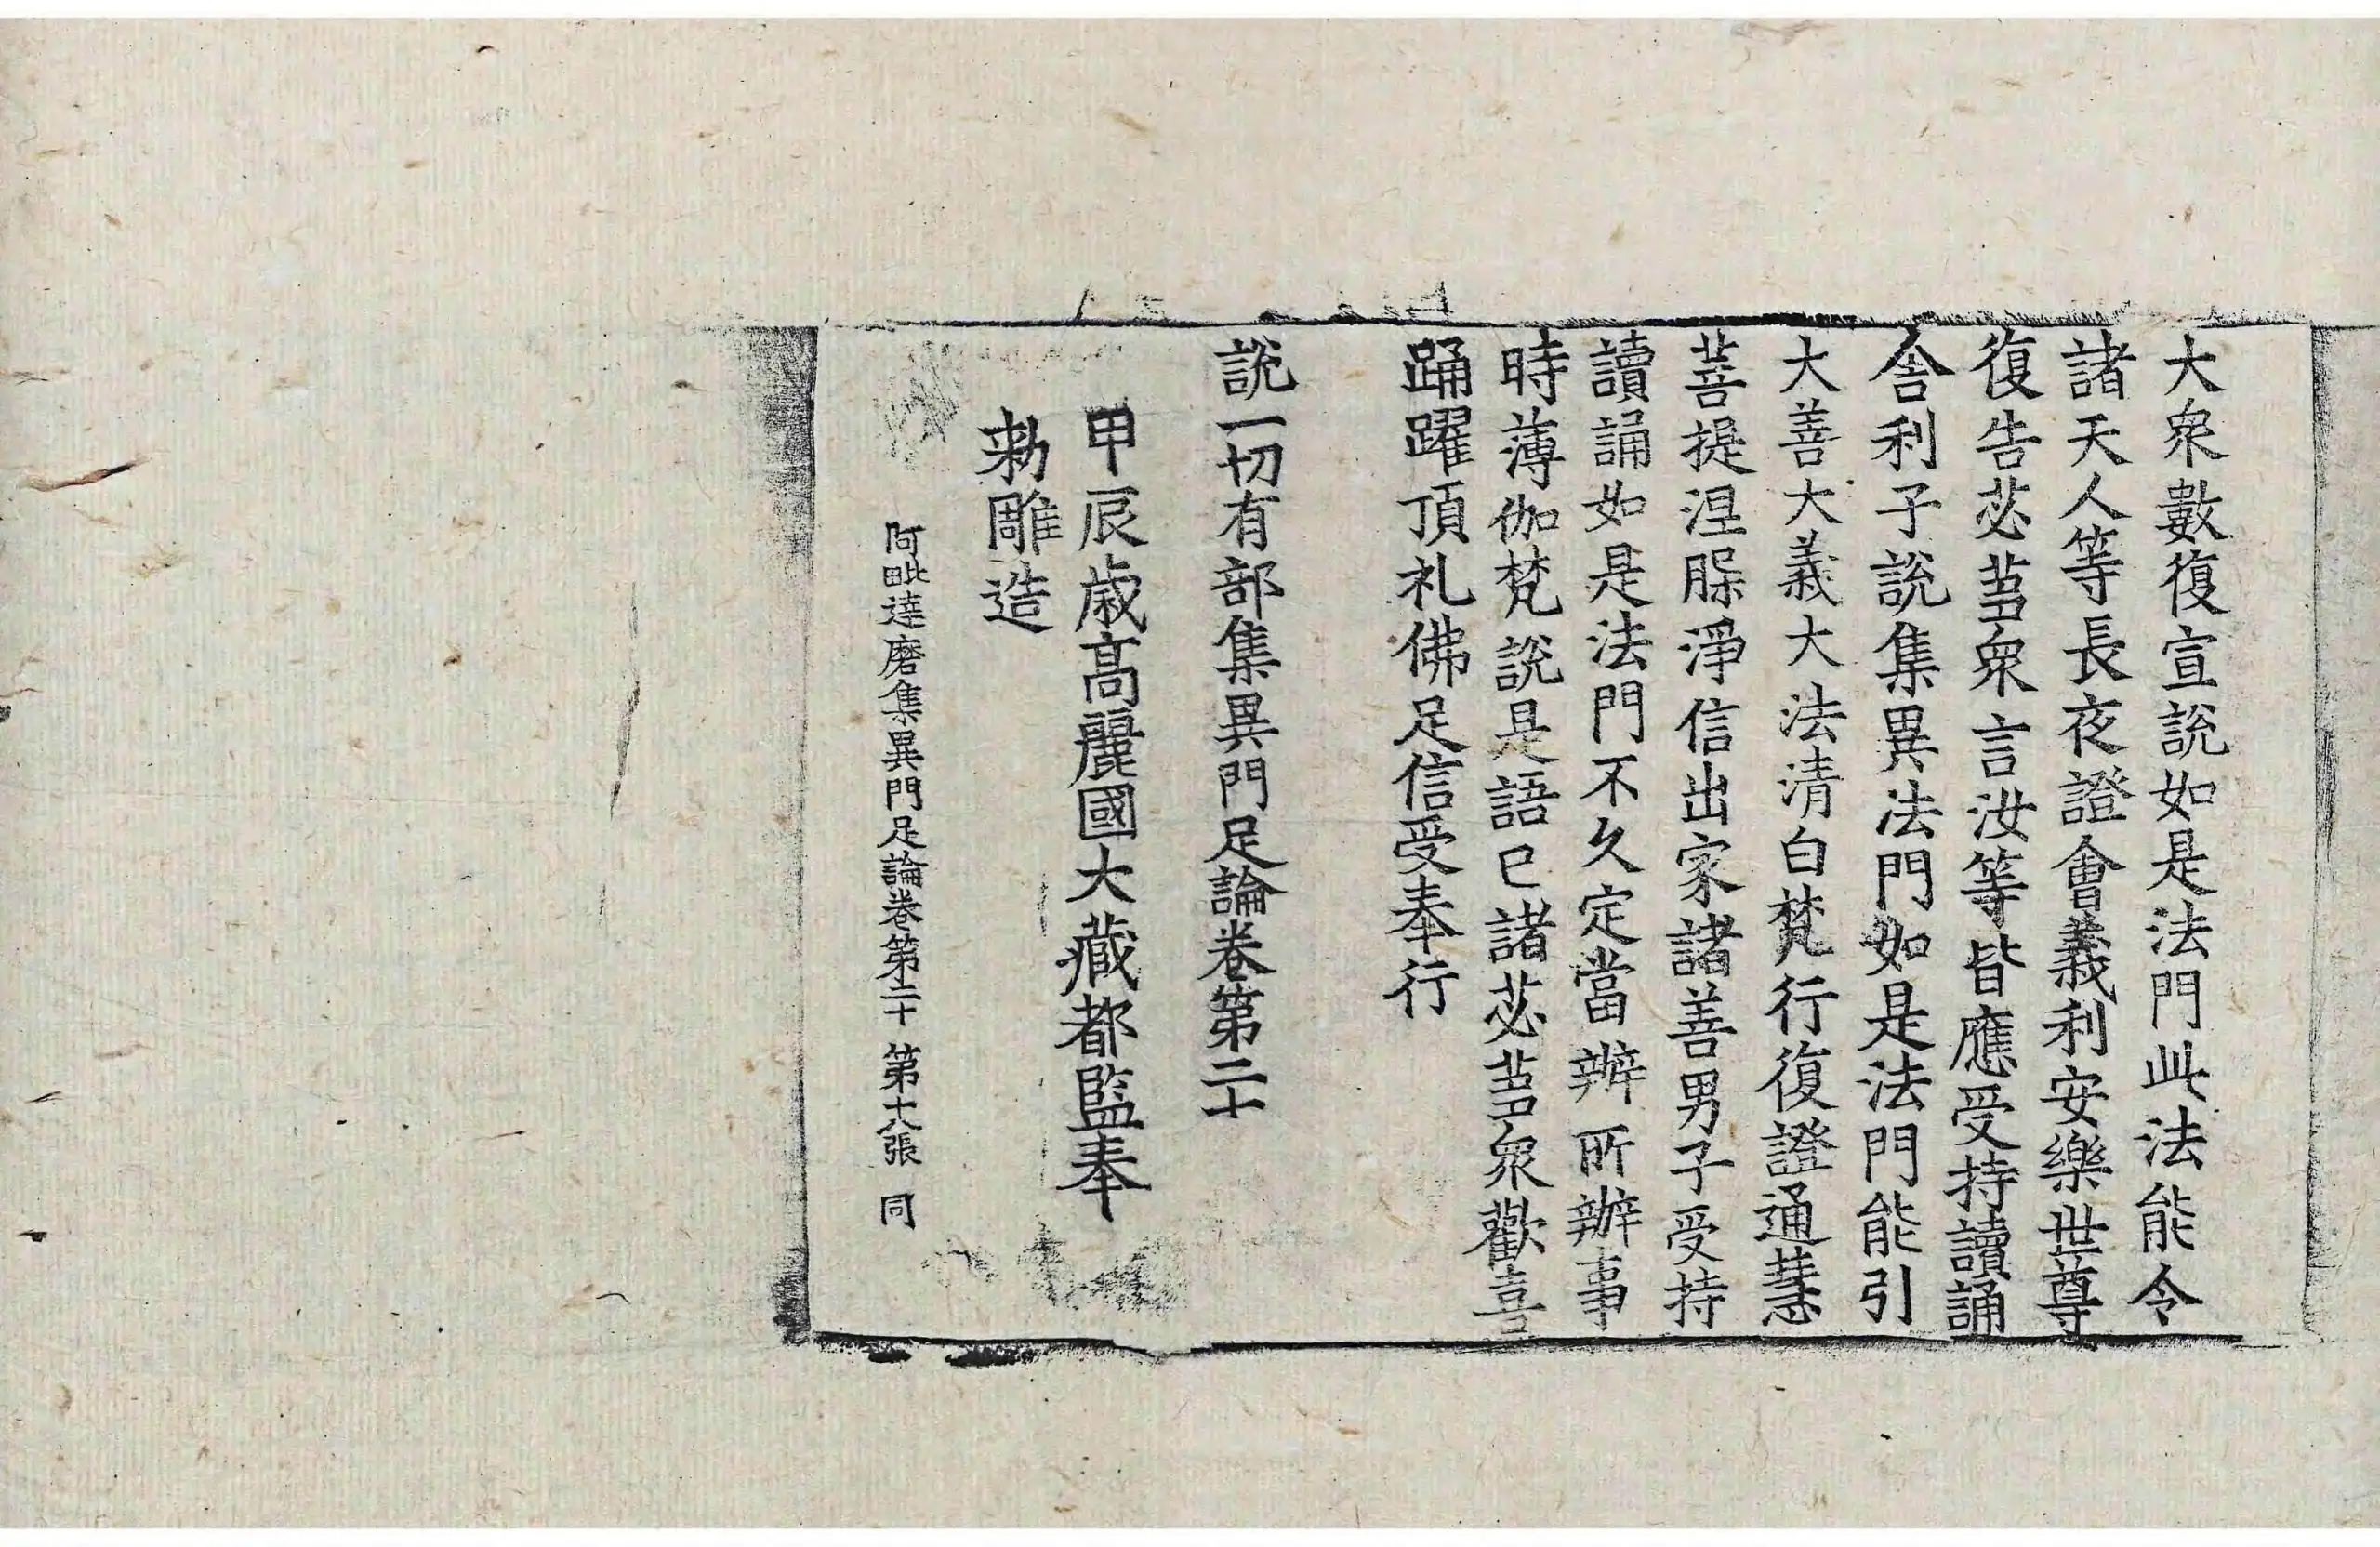 大衆數復宣說如是法門此法能令
諸天人等長夜證會義利安樂世尊
復告苾芻衆言汝等皆應受持讀誦
舍利子說集異法門如是法門能引
大善大義大法清白梵行復證通慧
菩提涅槃淨信出家諸善男子受持
讀誦如是法門不久定當辦所辦事
時薄伽梵說是語已諸苾芻衆歡喜
踊躍頂礼佛足信受奉行
說一切有部集異門足論卷第二十
甲辰歲高麗國大藏都監奉
勑雕造
阿毗達磨集異門足論卷第二十 第十八張 同